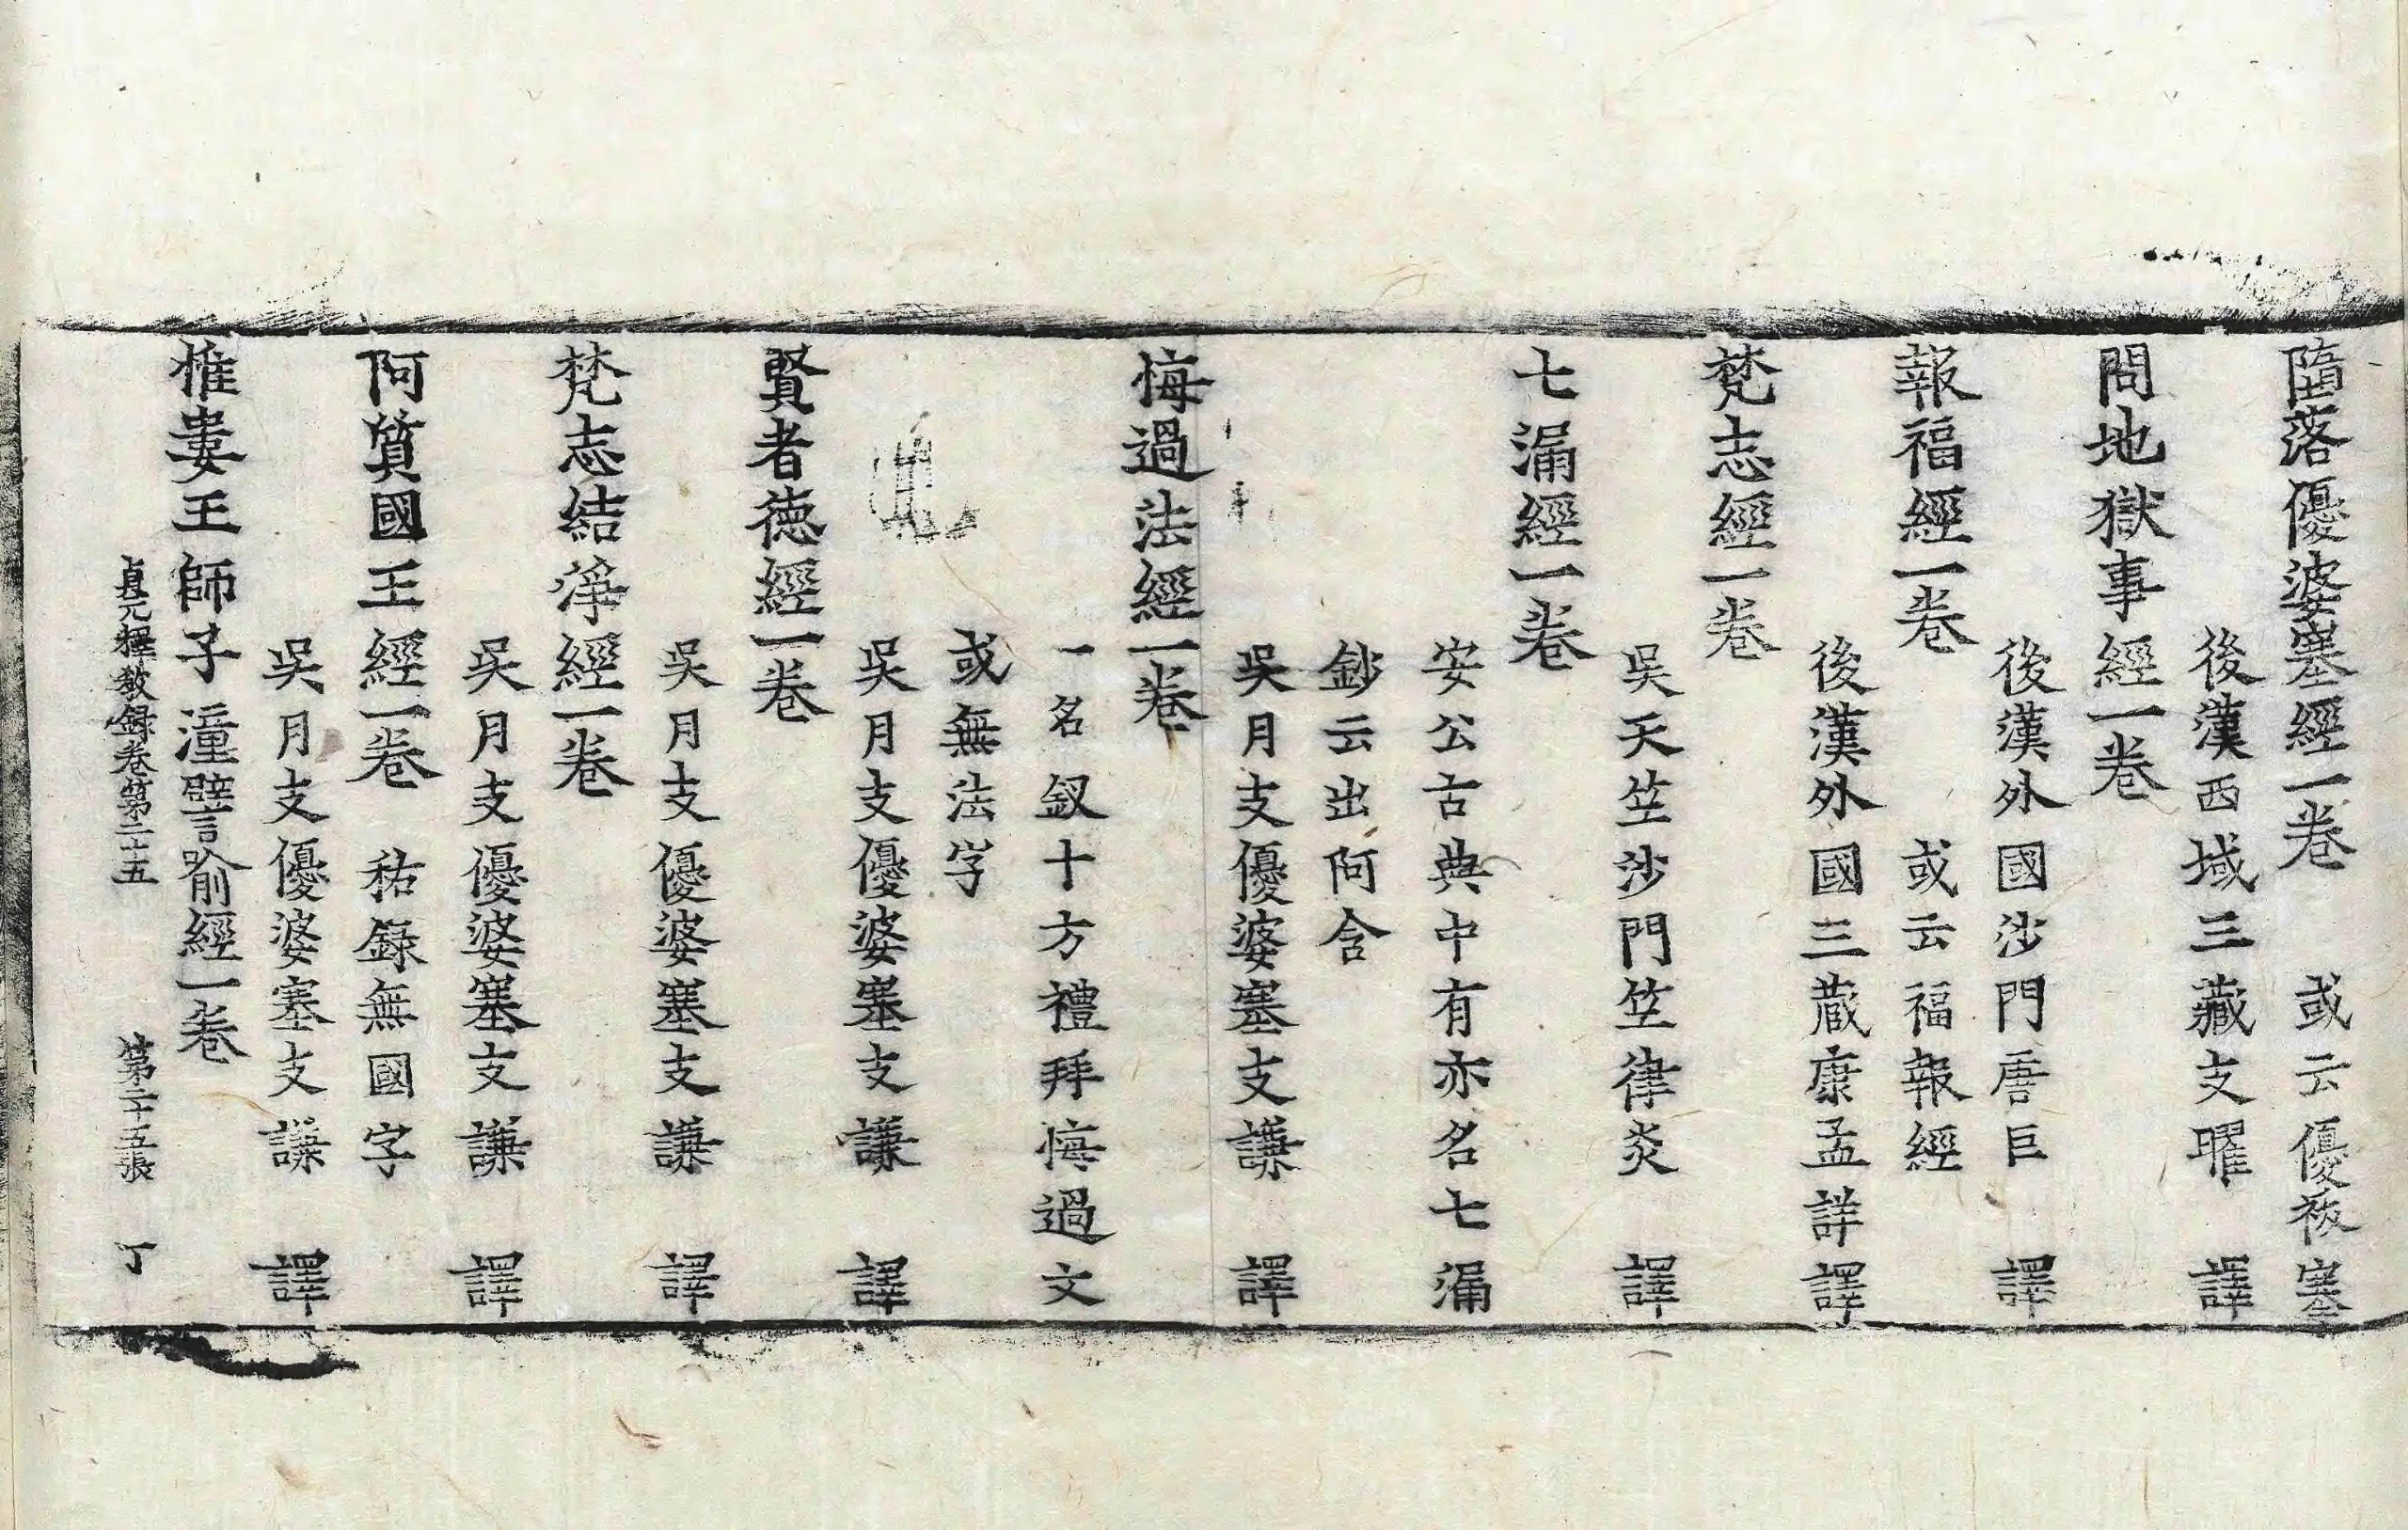 墮落優婆塞經一卷 或云優婆塞
後漢西域三藏支曜 譯
問地獄事經一卷
後漢外國沙門唐巨 譯
報福經一卷 或云福報經
後漢外國三藏康孟詳譯
梵志經一卷
吳天竺沙門竺律炎 譯
七漏經一卷
安公古典中有亦名七漏
鈔云出阿含
吳月支優婆塞支謙 譯
悔過法經一卷
一名釵十方禮拜悔過文
或無法字
吳月支優婆塞支謙 譯
賢者德經一卷
吳月支優婆塞支謙 譯
梵志結淨經一卷
吳月支優婆塞支謙 譯
阿質國王經一卷 祐錄無國字
吳月支優婆塞支謙 譯
惟婁王師子潼譬喻經一卷
貞元釋教錄卷第二十五 第二十五張 丁